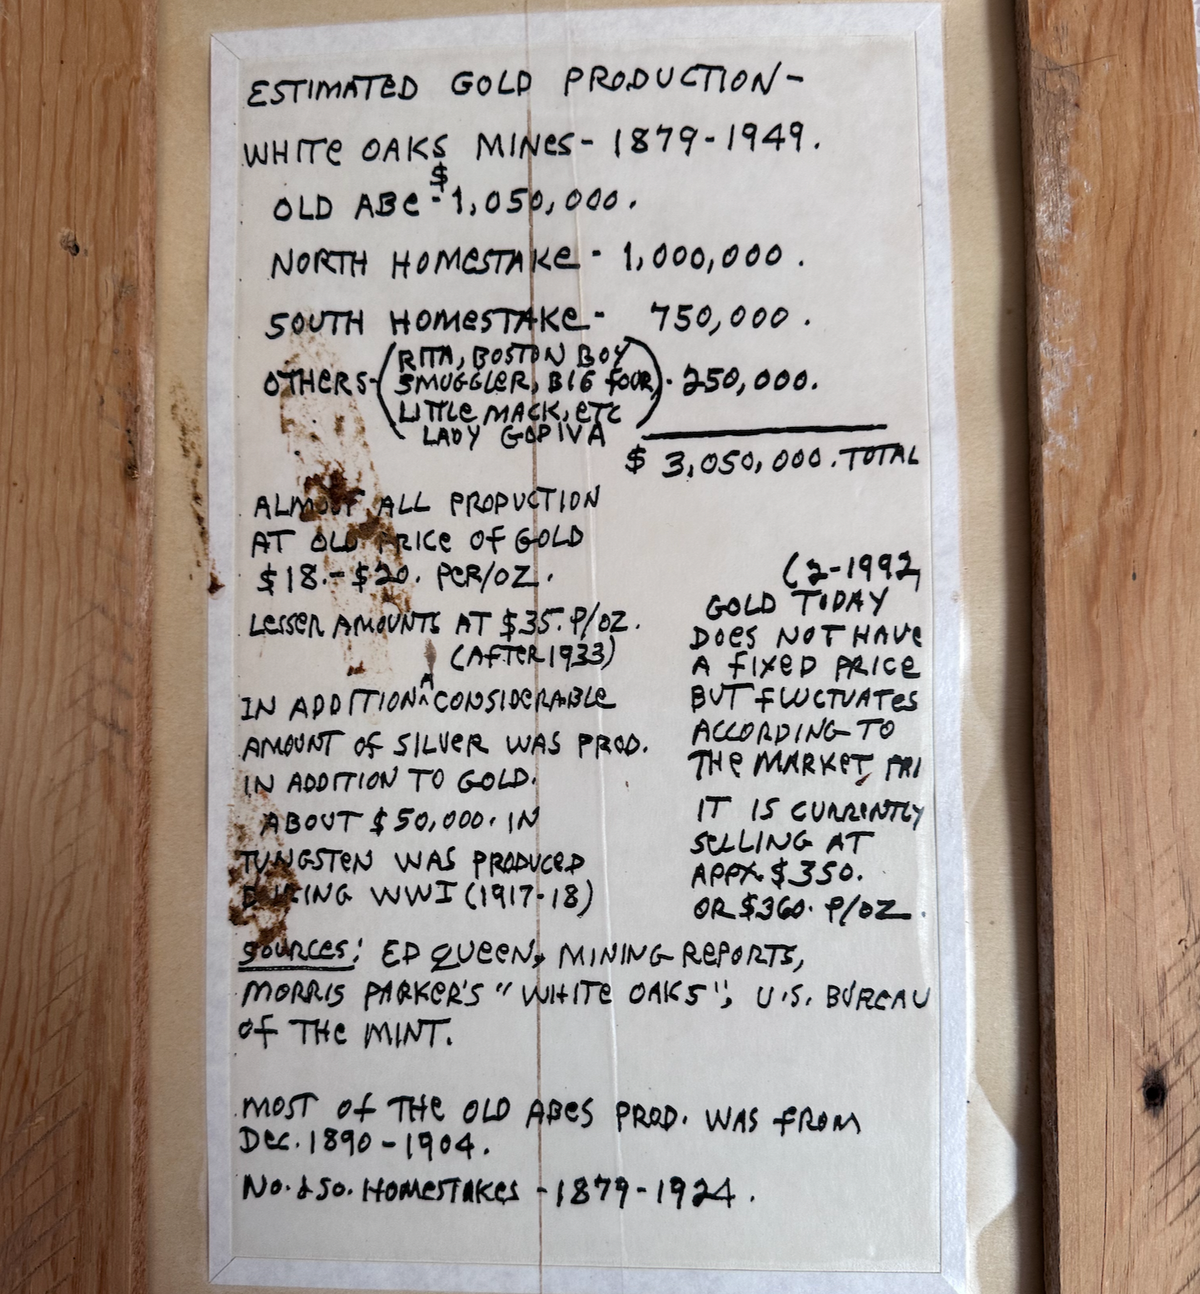 ESTIMATED GOLD PRODUCTION-
WHITE OAKS MINES- 1879-1949.
OLD ABE - $1,050,000.
NORTH HOMESTAKE - 1,000,000.
SOUTH HOMESTAKE- 750,000.
OTHERS- (RITA, BOSTON BOY
SMUGGLER, BIG FOUR,
LITTLE MACK, ETC
LADY GODIVA) - 250,000.
$ 3,050,000. TOTAL
ALMOST ALL PRODUCTION
AT OLD PRICE OF GOLD
$18.-$20. PER/OZ.
LESSER AMOUNTS AT $35. P/OZ.
(AFTER 1933)
IN ADDITION A CONSIDERABLE
AMOUNT OF SILVER WAS PROD.
IN ADDITION TO GOLD.
ABOUT $50,000. IN
TUNGSTEN WAS PRODUCED
DURING WWI (1917-18)
(2-1992,
GOLD TODAY
DOES NOT HAVE
A FIXED PRICE
BUT FLUCTUATES
ACCORDING TO
THE MARKET, PRI
IT IS CURRENTLY
SELLING AT
APPX. $350.
OR $360. P/OZ.
SOURCES: ED QUEEN, MINING REPORTS,
MORRIS PARKER'S "WHITE OAKS", U.S. BUREAU
OF THE MINT.
MOST OF THE OLD ABES PROD. WAS FROM
DEC. 1890-1904.
NO. & SO. HOMESTAKES - 1879-1924.